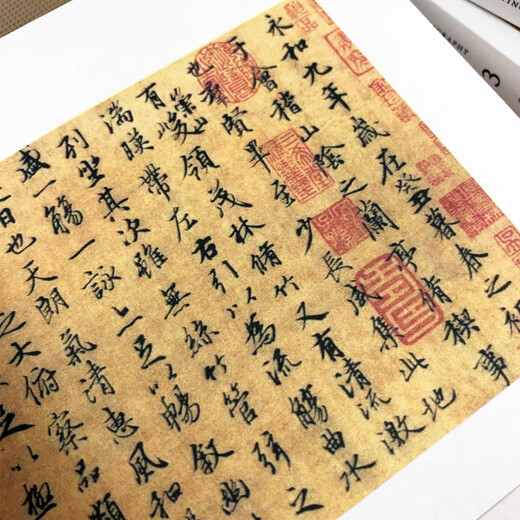 永和九年歲在癸丑暮春之初
于會稽山陰之蘭亭脩稧事
也羣賢畢至少長咸集此地
有崇山峻領茂林脩竹又有清流激
湍暎帶左右引以為流觴曲水
列坐其次雖無絲竹管弦之
盛一觴一詠亦足以暢敘幽
日也天朗氣清惠風和
之大俯察品類
足以極
3